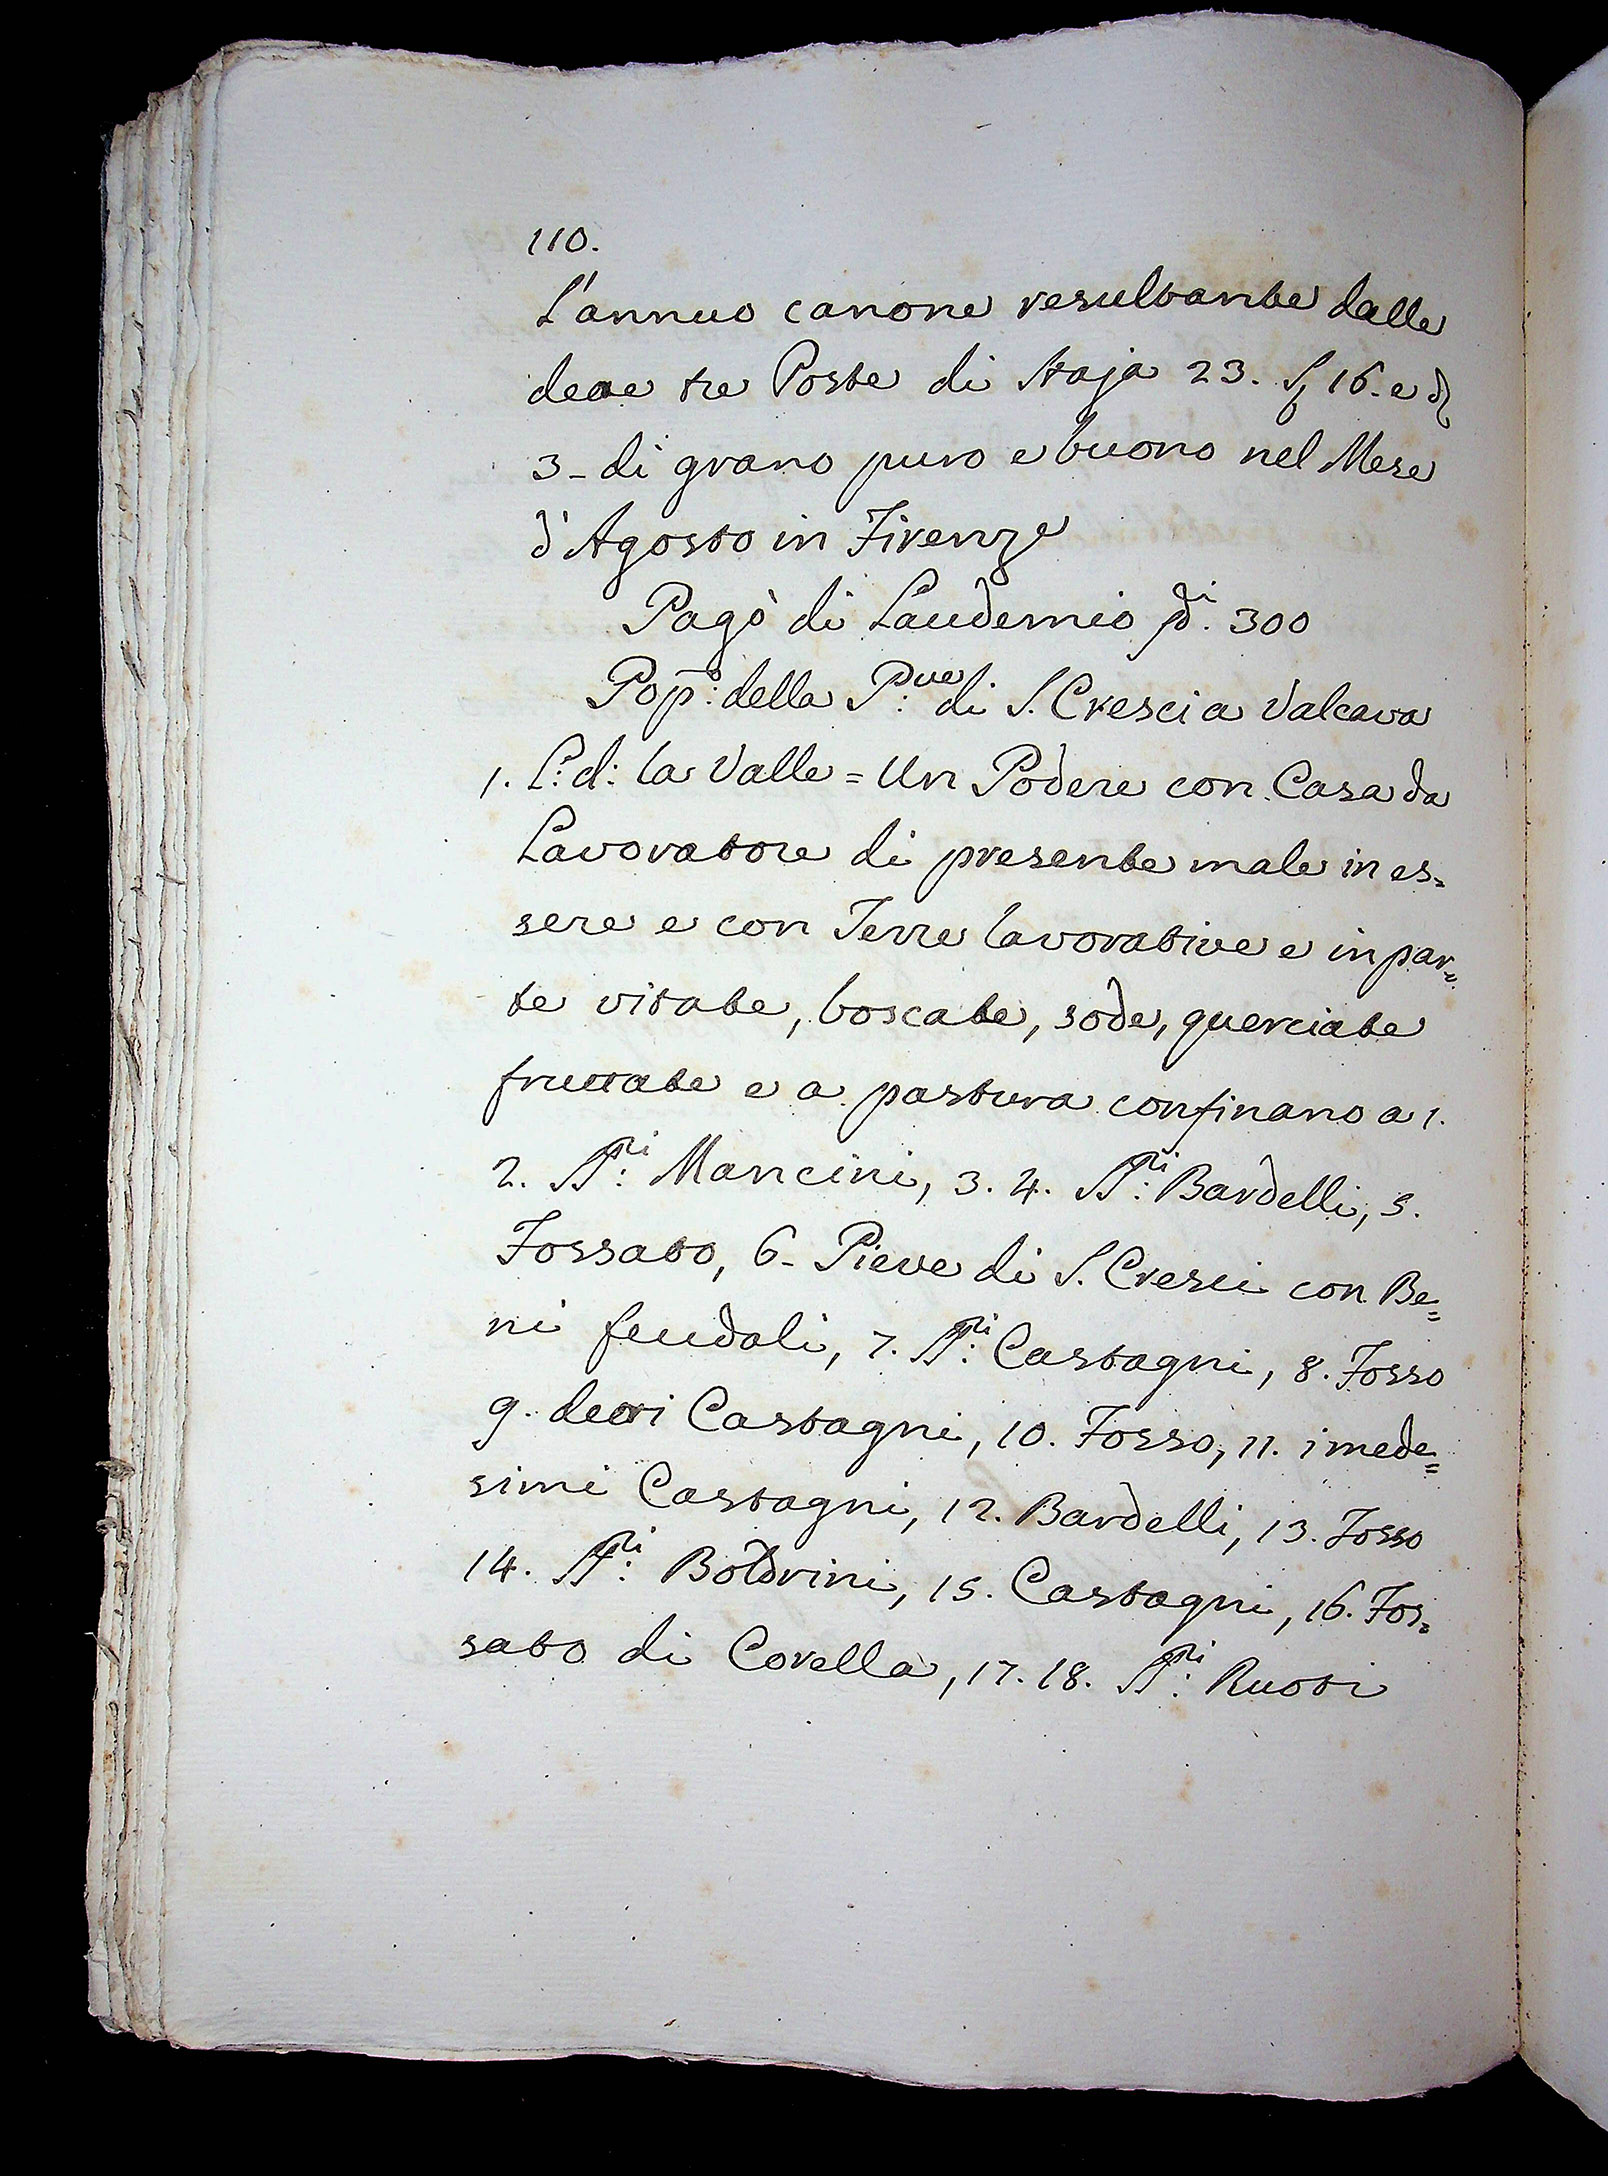 110.
L'annuo canone resultante dalle
dette tre Poste di Staja 23. S 16. e d
3 - di grano puro e buono nel Mese
d'Agosto in Firenze
Pagò di Laudemio di. 300
Pop: della P:ve di S. Cresci a Valcava
1. L: d: la Valle = Un Podere con Casa da
Lavoratore di presente male in es=
sere e con Terre lavorative e in par=
te vitate, boscate, sode, querciate
fruttate e a pastura confinano a 1.
2. SS:ri Mancini, 3. 4. SS:ri Bardelli, 5.
Fossato, 6 - Pieve di S. Cresci con Be=
ni feudali, 7. SS:ri Castagni, 8. Fosso
9. detti Castagni, 10. Fosso, 11. i mede=
simi Castagni, 12. Bardelli, 13. Fosso
14. SS:ri Boldrini, 15. Castagni, 16. Fos=
sato di Corella, 17. 18. SS:ri Ruoti